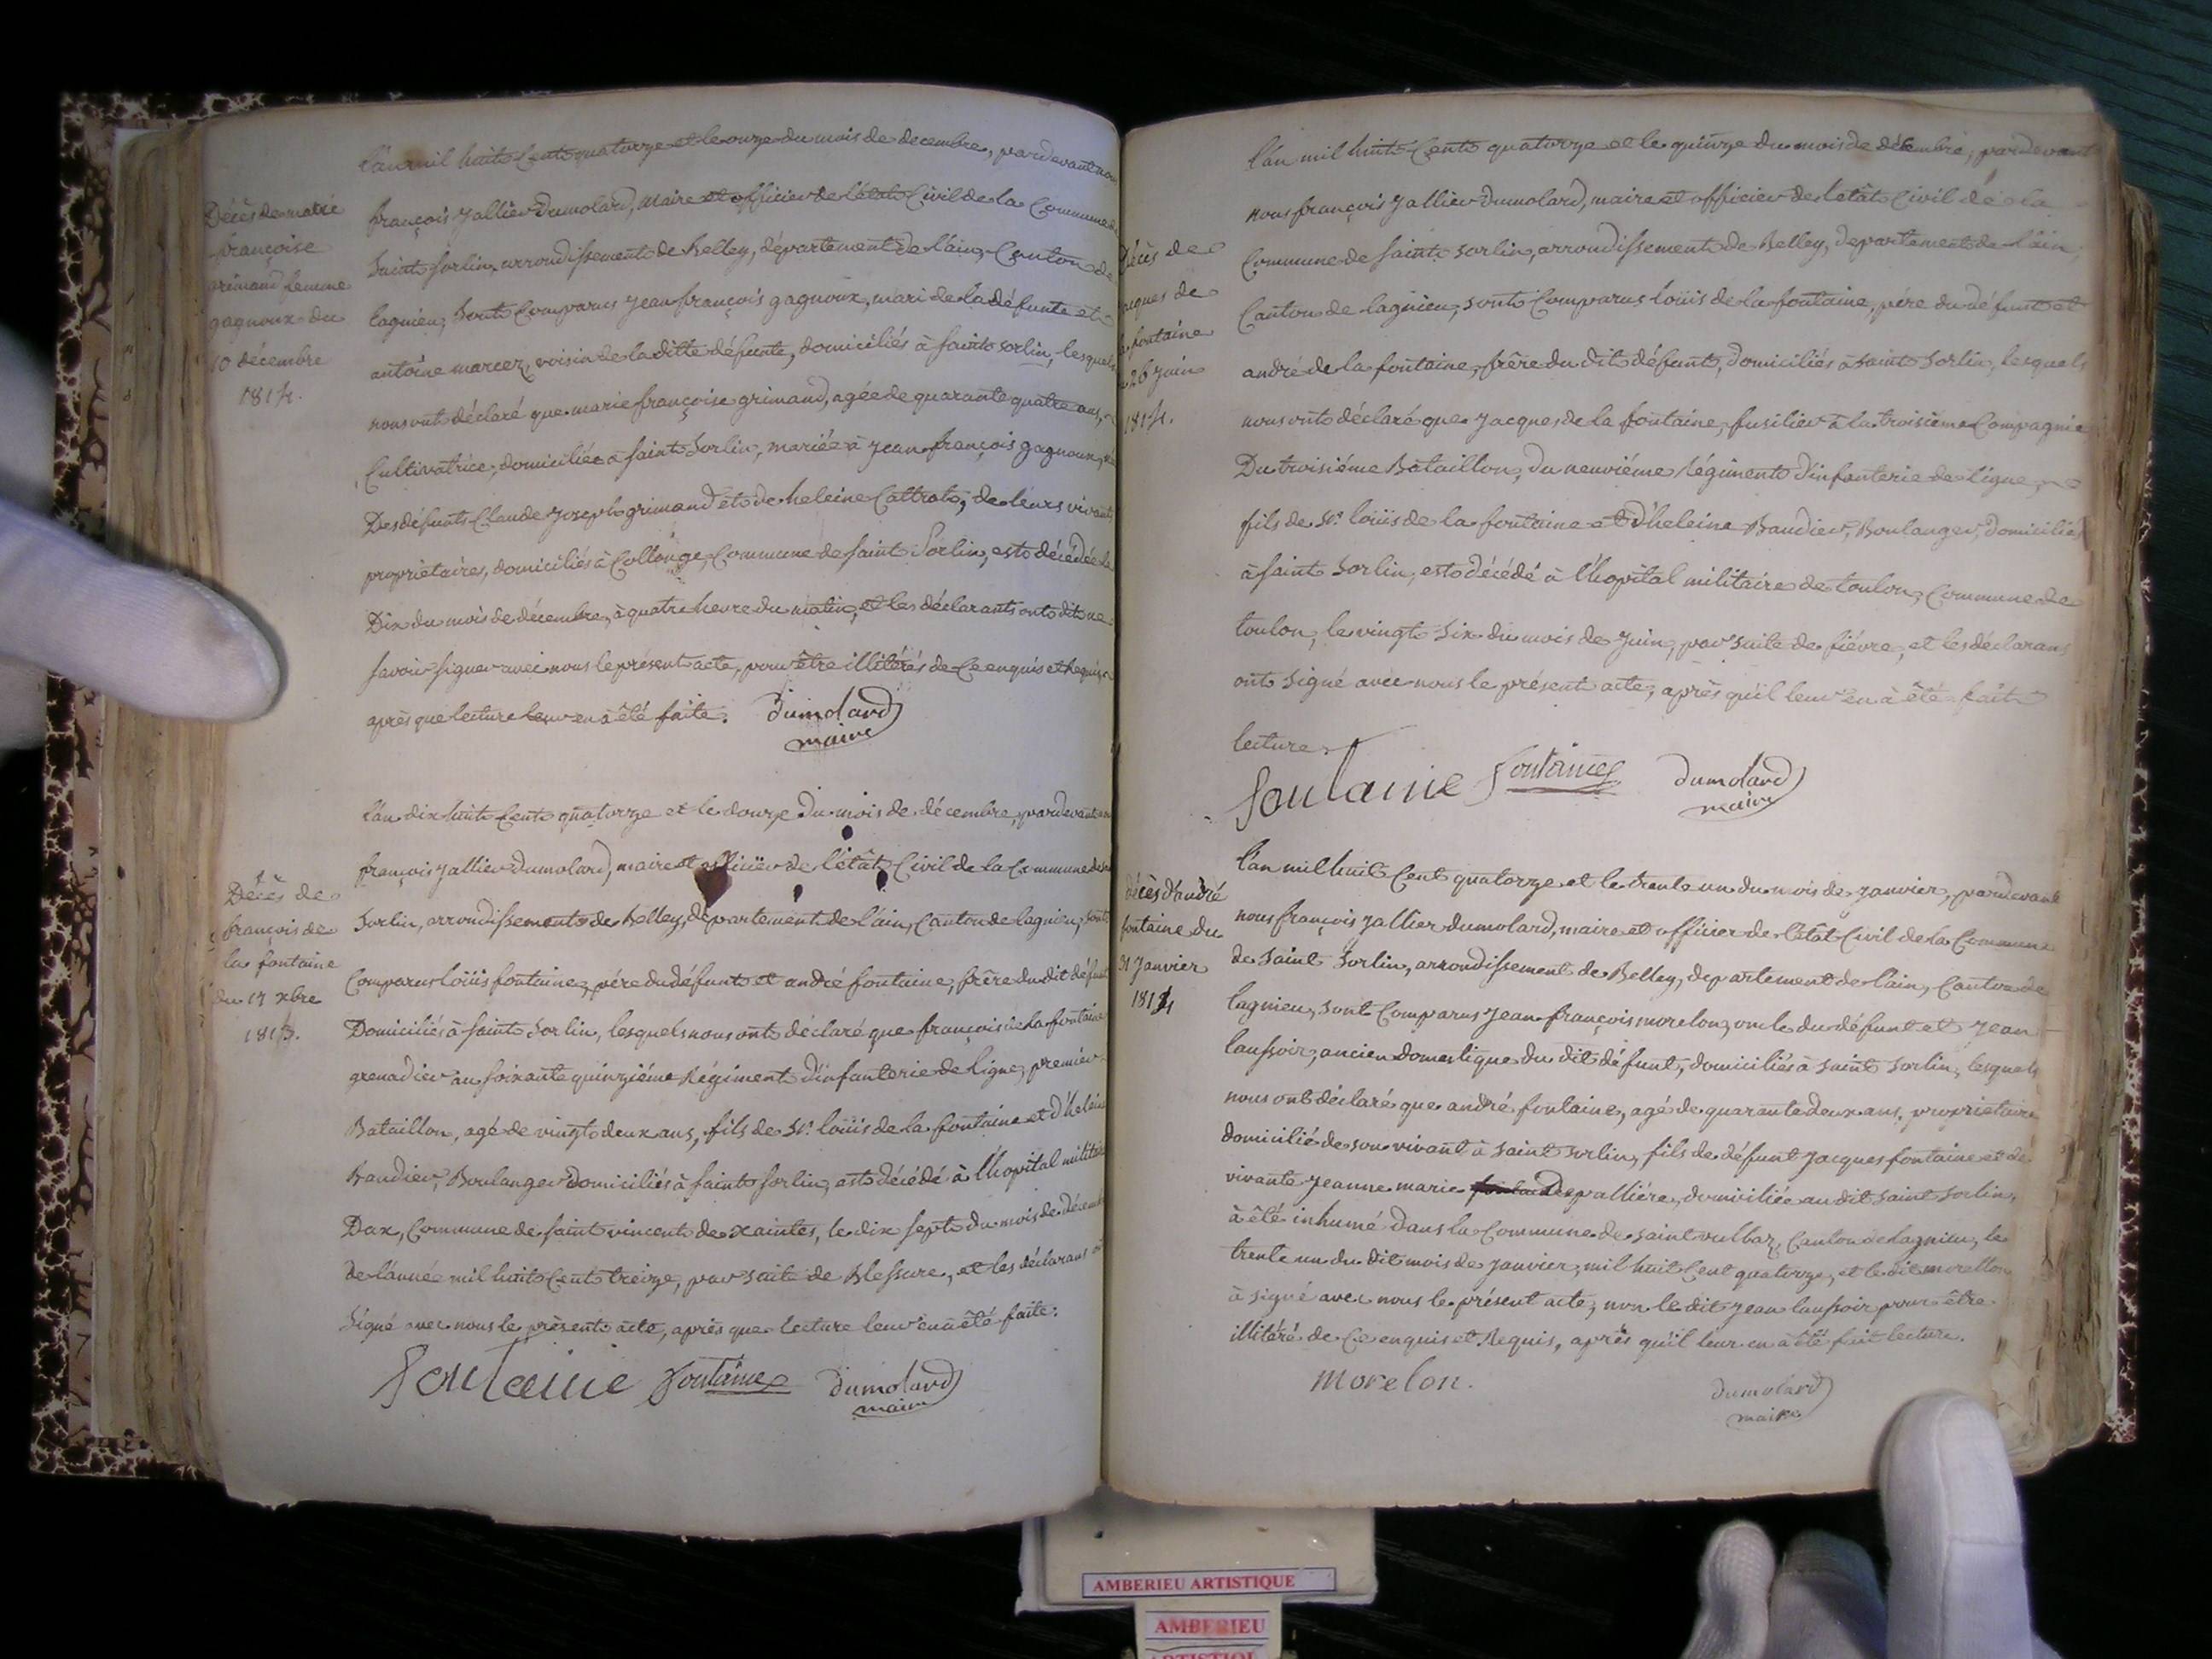 Décès de marie
françoise
grimand femme
gagnoux du
10 décembre
1814.
L'an mil huit Cent quatorze et le onze du mois de decembre, pardevant nous
françois Jallier Dumolard, Maire et officier de l'état Civil de la Commune de
Saint Sorlin, arrondissement de Belley, département de l'ain, Canton de
lagnieu, Sont Comparus Jean françois gagnoux, mari de la défunte et
antoine marcer, voisin de la ditte défunte, domiciliés à Saint Sorlin, lesquels
nous ont déclaré que marie françoise grimand, agée de quarante quatre ans,
Cultivatrice, domiciliée à Saint Sorlin, mariée à Jean françois gagnoux,
Des défunts Claude Joseph grimand et de heleine Cattrat, de leurs vivants
propriétaires, domiciliés à Collonge, Commune de Saint Sorlin, est décédée le
Dix du mois de décembre, à quatre heure du matin, et les déclarants ont dit ne
Savoir Signer avec nous le présent acte, pour être illitérés de Ce enquis et Requis,
après que lecture leur en à été faite. Dumolard
maire
Décès de
françois de
la fontaine
du 17 xbre
1813.
L'an dix huit Cent quatorze et le douze Du mois de décembre, pardevant
françois Jallier Dumolard, maire et officier de l'état Civil de la Commune de
Sorlin, arrondissement de Belley, département de l'ain, Canton de lagnieu, Sont
Comparus loüis fontaine, père du défunt et andré fontaine, frère du dit défunt
Domiciliés à Saint Sorlin, lesquels nous ont déclaré que françois de la fontaine
grenadier au Soixante quinzième Régiment d'infanterie de ligne, premier
Bataillon, agé de vingt deux ans, fils de Sr. loüis de la fontaine et d'heleine
Baudier, Boulanger domiciliés à Saint Sorlin, est décédé à l'hopital militaire
Dax, Commune de Saint vincent de Xaintes, le dix Sept du mois de décembre
De l'année mil huit Cent treize, par Suite de Blessure, et les déclarans ont
Signé avec nous le présent acte, après que lecture leur en à été faite.
fontaine fontaine Dumolard
maire
Décès de
Jacques de
la fontaine
26 Juin
1814.
L'an mil huit Cent quatorze et le quinze du mois de décembre, pardevant
nous françois Jallier Dumolard, maire et officier de l'état Civil de la
Commune de Saint Sorlin, arrondissement de Belley, departement de l'ain,
Canton de lagnieu, Sont Comparus loüis de la fontaine, père du défunt et
andré de la fontaine, frère du dit défunt, domiciliés à Saint Sorlin, lesquels
nous ont déclaré que Jacques de la fontaine, fusilier à la troisième Compagnie
Du troisième Bataillon, du neuvième Régiment d'infanterie de ligne,
fils de Sr. loüis de la fontaine et d'heleine Baudier, Boulanger, domiciliés
à Saint Sorlin, est décédé à l'hopital militaire de toulon, Commune de
toulon, le vingt Six du mois de Juin, par Suite de fièvre, et les déclarans
ont Signé avec nous le présent acte, après qu'il leur en à été fait
lecture.
fontaine fontaine Dumolard
maire
décès d'andré
fontaine du
31 Janvier
1814
L'an mil huit Cent quatorze et le trente un du mois de Janvier, pardevant
nous françois Jallier dumolard, maire et officier de l'état Civil de la Commune
de Saint Sorlin, arrondissement de Belley, departement de l'ain, Canton de
lagnieu, Sont Comparus Jean françois morelon, oncle du défunt et Jean
laussoir, ancien domestique du dit défunt, domiciliés à Saint Sorlin, lesquels
nous ont déclaré que andré fontaine, agé de quarante deux ans, propriétaire
domicilié de son vivant à Saint Sorlin, fils de défunt Jacques fontaine et de
vivante Jeanne marie Depallière, domiciliée au dit Saint Sorlin,
à été inhumé Dans la Commune de Saint vulbaz, Canton de Lagnieu, le
trente un du dit mois de Janvier, mil huit Cent quatorze, et le dit morellon
à Signé avec nous le présent acte, non le dit Jean laussoir pour être
illitéré de Ce enquis et Requis, après qu'il leur en à été fait lecture.
morelon. dumolard
maire
AMBERIEU ARTISTIQUE
AMBERIEU
ARTISTIQUE